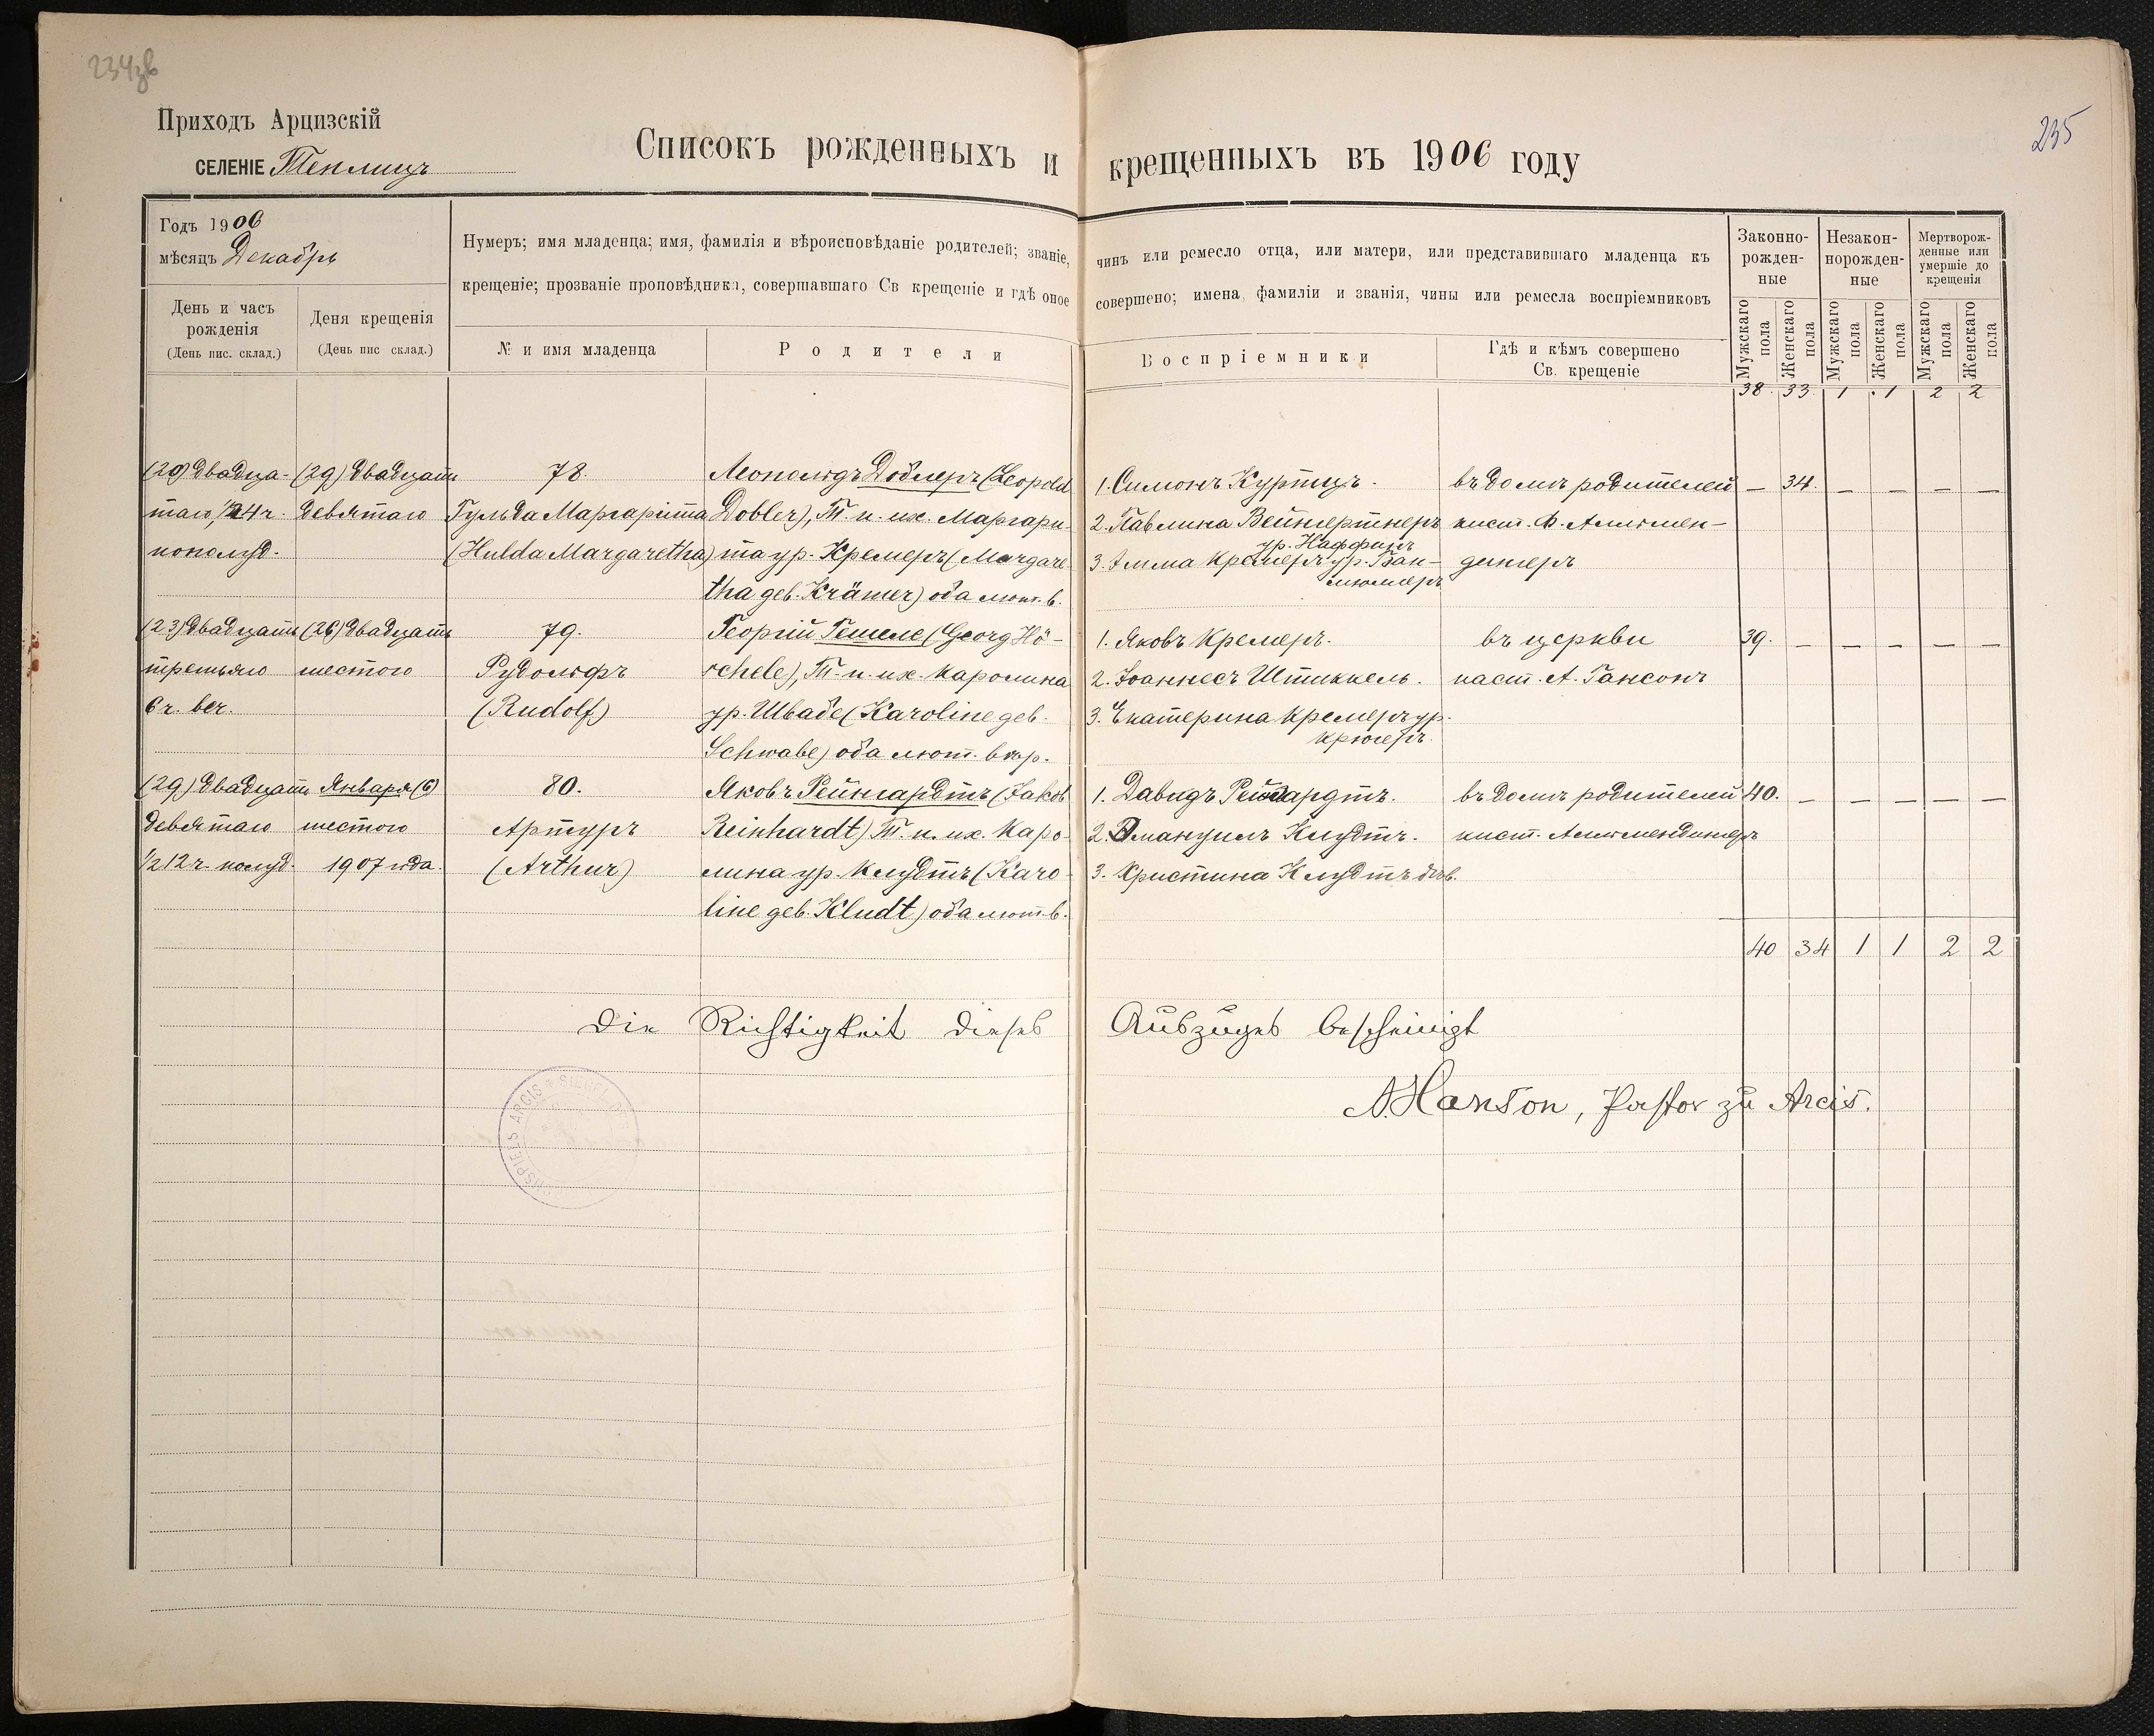 234зв
235
Приходъ Арцизскій
СЕЛЕНІЕ Теплицъ
Списокъ рожденныхъ и крещенныхъ въ 1906 году
Годъ 1906
мѣсяцъ Декабрь
День и часъ
рожденія
(День пис. склад.)
Деня крещенія
(День пис склад.)
Нумеръ; имя младенца; имя, фамилія и вѣроисповѣданіе родителей; званіе, чинъ или ремесло отца, или матери, или представившаго младенца къ
крещеніе; прозваніе проповѣдника, совершавшаго Св крещеніе и гдѣ оное совершено; имена, фамиліи и званія, чины или ремесла воспріемниковъ
№ и имя младенца
Родители
Воспріемники
Гдѣ и кѣмъ совершено
Св. крещеніе
Законно-
рожден-
ные
Незакон-
норожден-
ные
Мертворож-
денные или
умершіе до
крещенія
Мужскаго пола
Женскаго пола
Мужскаго пола
Женскаго пола
Мужскаго пола
Женскаго пола
38. 33. 1 1 2 2
(20) двадца-
таго, 1/2 4 ч.
пополуд.
(29) двадцать
девятаго
78.
Гульда Маргарита
(Hulda Margaretha)
Леопольдъ Доблеръ (Leopold
Dobler), Т. п. их. Маргари-
та ур. Кремеръ (Margare-
tha geb. Krämer) оба лют. в.
1. Симонъ Куртцъ.
2. Павлина Вейнгертнеръ
ур. Наффинъ
3. Эмма Кремеръ ур. Ван-
въ домѣ родителей
кист. Ф. Альмен-
дингеръ
— 34. — — — —
(23) двадцать
третьяго
6 ч. веч.
(26) двадцать
шестого
79.
Рудольфъ
(Rudolf)
Георгій Гешеле (Georg Hö-
schele), Т. п. их. Каролина
ур. Швабе (Karoline geb.
Schwabe) оба лют. вѣр.
1. Яковъ Кремеръ.
2. Іоаннесъ Штиккель.
3. Екатерина Кремеръ ур.
Крюгеръ.
въ церкви
паст. А. Гансонъ
39. — — — — —
(29) двадцать
девятаго
1/2 12 ч. полуд.
Января (6)
шестого
1907 года.
80.
Артуръ
(Arthur)
Яковъ Рейнгардтъ (Jakob
Reinhardt) Т. п. их. Каро-
лина ур. Клудтъ (Karo-
line geb. Kludt) оба лют. в.
1. Давидъ Рейнгардтъ.
2. Эмануилъ Клудтъ.
3. Христина Клудтъ дѣв.
въ домѣ родителей
кист. Альмендингеръ
40. — — — — —
40 34 1 1 2 2
Die Richtigkeit dieses Auszuges bescheinigt
A. Hanson, Pastor zu Arcis.
KIRCHSPIELS ARCIS * SIEGEL